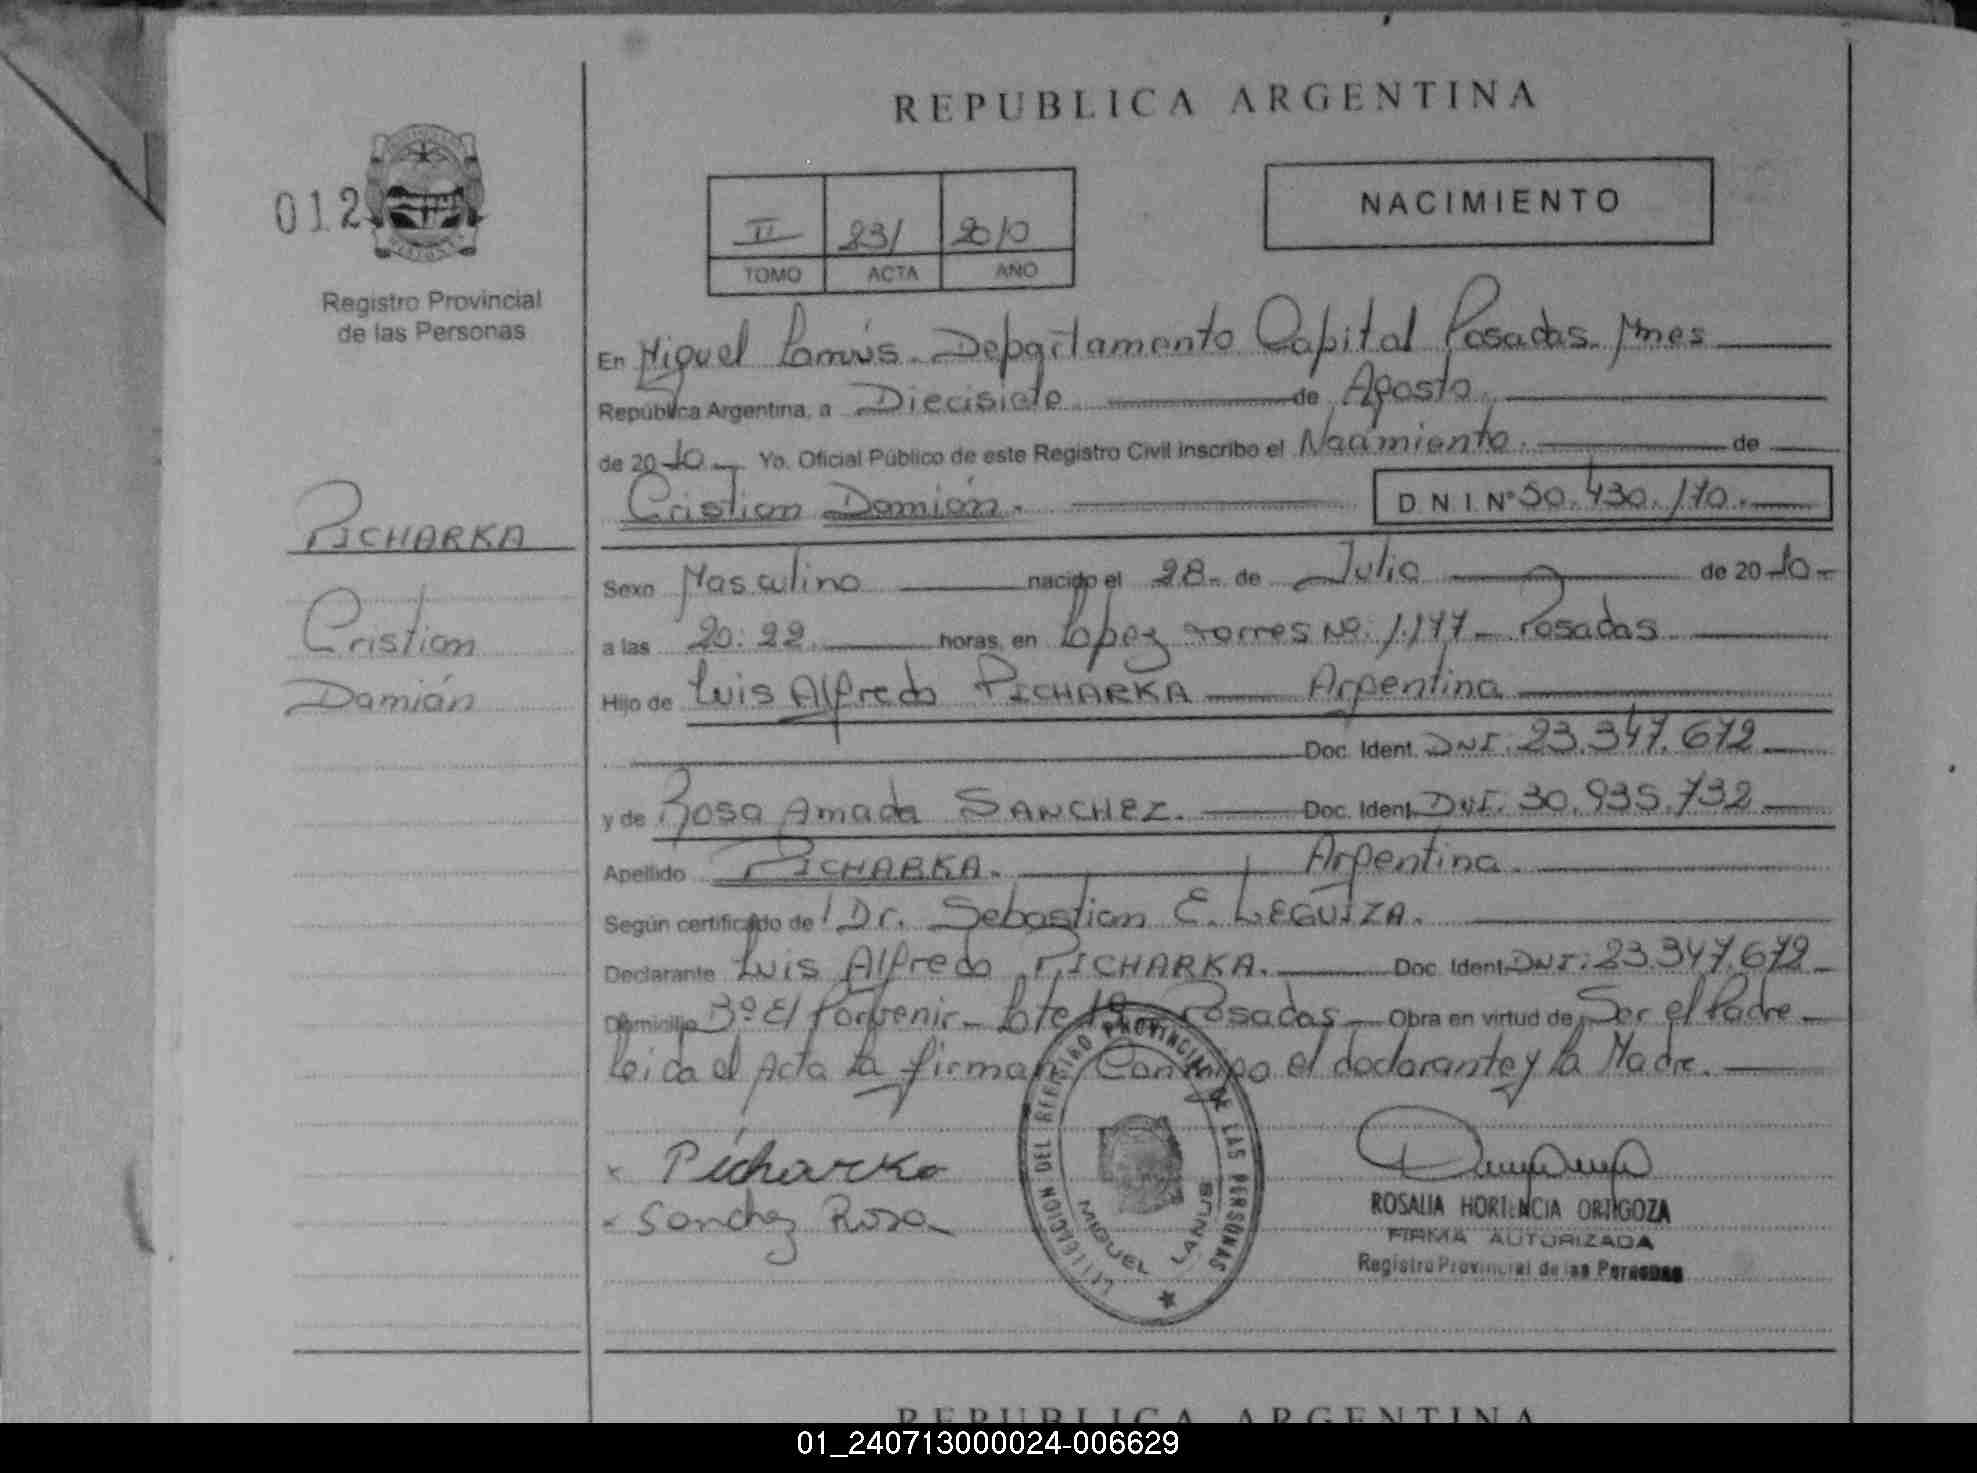 REPUBLICA ARGENTINA
012
NACIMIENTO
II 231 2010
TOMO ACTA AÑO
Registro Provincial
de las Personas
En Miguel Lanús. Departamento Capital Posadas. Mnes
República Argentina, a Diecisiete de Agosto
de 2010 Yo. Oficial Público de este Registro Civil inscribo el Nacimiento. de
Cristian Damián. D.N.I. Nº 50.430.170.
PICHARKA
Cristian
Damián
Sexo Masculino nacido el 28. de Julio de 2010
a las 20:22 horas, en López Torres Nº. 1.177 - Posadas
Hijo de Luis Alfredo PICHARKA Argentina
Doc. Ident. DNI. 23.347.672
y de Rosa Amada SANCHEZ. Doc. Ident. DNI. 30.935.732
Apellido PICHARKA. Argentina
Según certificado de Dr. Sebastian E. LEGUIZA.
Declarante Luis Alfredo PICHARKA. Doc. Ident. DNI: 23.347.672
Domicilio Bº El Porvenir - Lote 19 Posadas - Obra en virtud de Ser el Padre
leida el Acta la firman Conmigo el declarante y la Madre.
x Picharka
x Sanchez Rosa
DELEGACION DEL REGISTRO PROVINCIAL DE LAS PERSONAS
MIGUEL LANUS
ROSALIA HORTENCIA ORTIGOZA
FIRMA AUTORIZADA
Registro Provincial de las Personas
REPUBLICA ARGENTINA
01_240713000024-006629